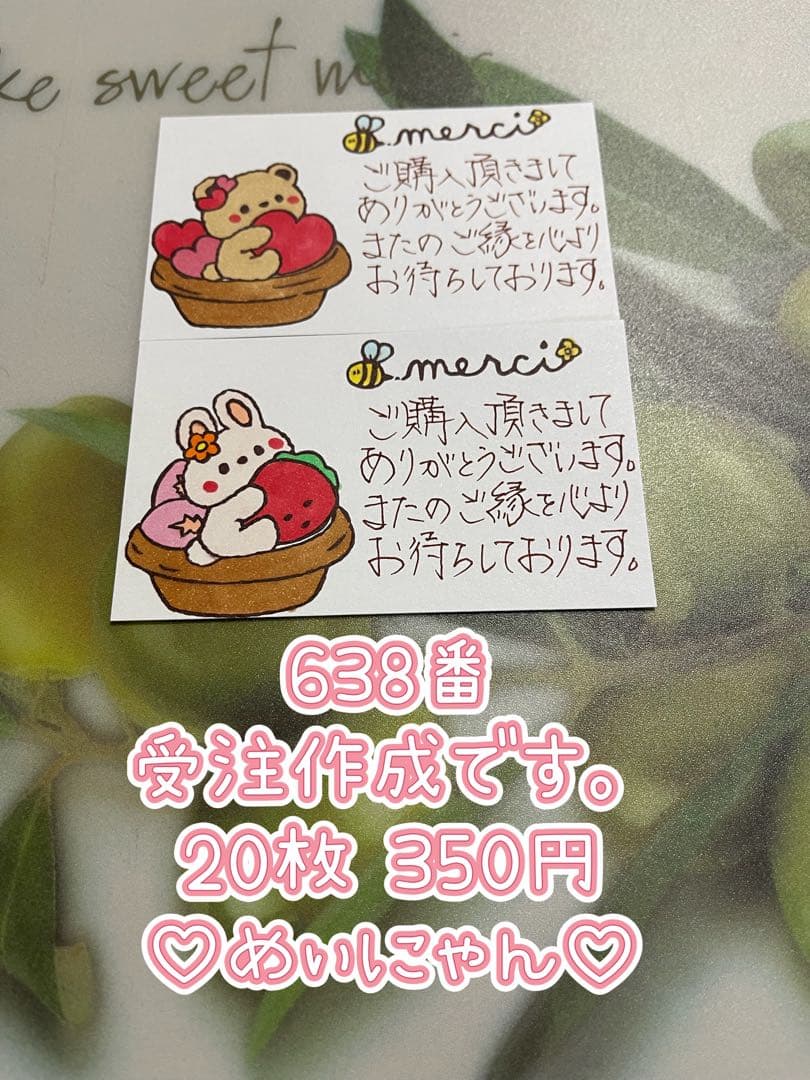 ke sweet m
merci
ご購入頂きまして
ありがとうございます。
またのご縁を心より
お待ちしております。
merci
ご購入頂きまして
ありがとうございます。
またのご縁を心より
お待ちしております。
638番
受注作成です。
20枚 350円
♡めいにゃん♡